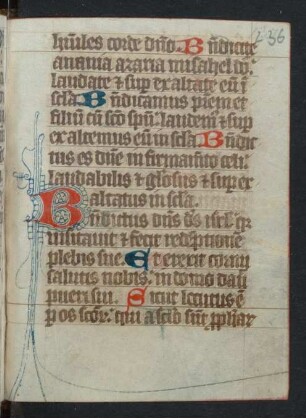 236
hu͞iles corde dn͞o. Bn͞dicite
anania azaria misahel dn͞o.
laudate ⁊ suꝑ exaltate eu͞ i͞
sc͞la. Bn͞dicamus pr͞em et
filiu͞ cu͞ sc͞o spu͞. laudem⁹ ⁊ suꝑ
exaltemus eu͞ in sc͞la. Bn͞dic
tus es dn͞e in firmam͞to celi.
laudabilis ⁊ gl͞osus ⁊ suꝑ ex
altatus in sc͞la.
Bn͞dictus dn͞s d͞s isrl͞. qr
uisitauit ⁊ fecit rede͞ptione͞
plebis sue. Et erexit cornu
salutis nobis. in domo dau͞
pueri sui. Sicut locutus e͞
ꝑ os sc͞or͞. qui a sc͞lo su͞t ꝓphar͞